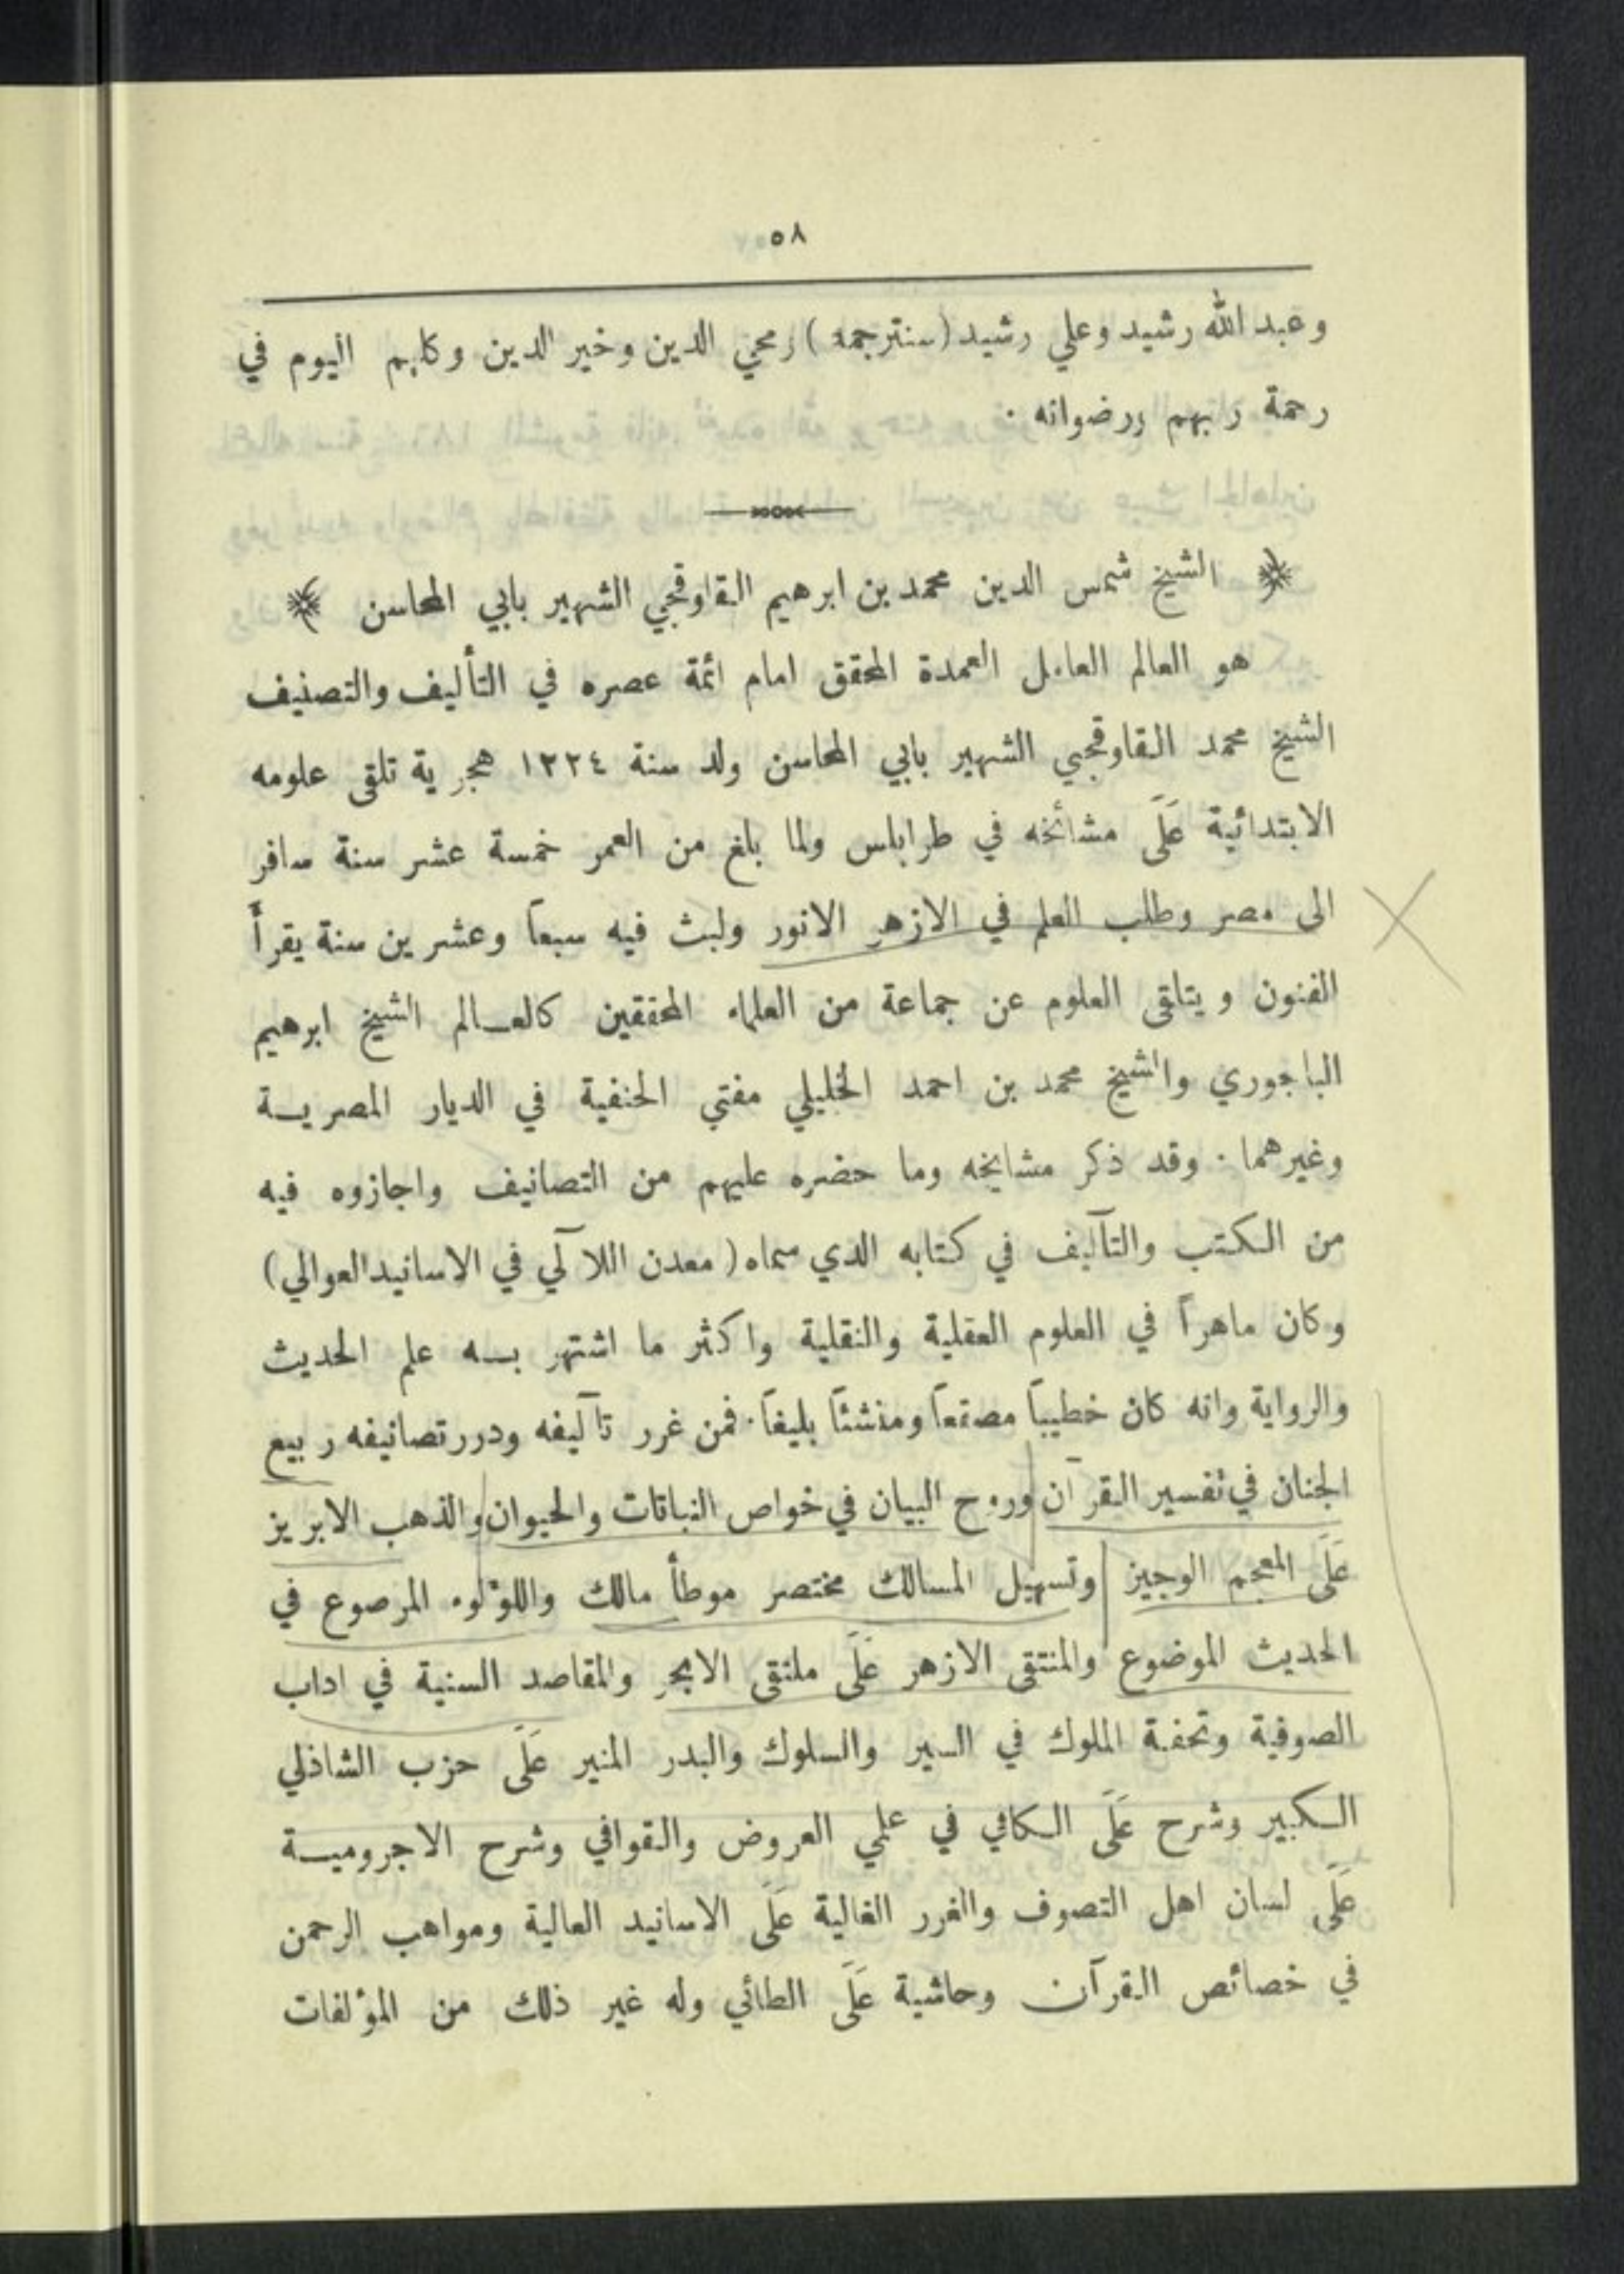 ٥٨
وعبد الله رشيد وعلي رشيد (سنترجمه) ومحي الدين وخير الدين وكلهم اليوم في
رحمة ربهم ورضوانه ·
﴿ الشيخ شمس الدين محمد بن ابرهيم القاوقجي الشهير بابي المحاسن ﴾
هو العالم العامل العمدة المحقق امام ائمة عصره في التأليف والتصنيف
الشيخ محمد القاوقجي الشهير بابي المحاسن ولد سنة ١٢٢٤ هجرية تلقى علومه
الابتدائية عَلَى مشائخه في طرابلس ولما بلغ من العمر خمسة عشر سنة سافر
الى مصر وطلب العلم في الازهر الانور ولبث فيه سبعاً وعشرين سنة يقرأ
الفنون ويتلقى العلوم عن جماعة من العلماء المحققين كالعالم الشيخ ابرهيم
الباجوري والشيخ محمد بن احمد الخليلي مفتي الحنفية في الديار المصرية
وغيرهما · وقد ذكر مشايخه وما حضره عليهم من التصانيف واجازوه فيه
من الكتب والتآليف في كتابه الذي سماه (معدن اللآلي في الاسانيد العوالي)
وكان ماهراً في العلوم العقلية والنقلية واكثر ما اشتهر به علم الحديث
والرواية وانه كان خطيباً مصقعاً ومنشئاً بليغاً · فمن غرر تآليفه ودرر تصانيفه ربيع
الجنان في تفسير القرآن وروح البيان في خواص النباتات والحيوان والذهب الابريز
عَلَى المعجم الوجيز وتسهيل المسالك مختصر موطأ مالك واللؤلوء المرصوع في
الحديث الموضوع والمنتقى الازهر عَلَى ملتقى الابحر والمقاصد السنية في اداب
الصوفية وتحفة الملوك في السير والسلوك والبدر المنير عَلَى حزب الشاذلي
الكبير وشرح عَلَى الكافي في علمي العروض والقوافي وشرح الاجرومية
عَلَى لسان اهل التصوف والغرر الغالية عَلَى الاسانيد العالية ومواهب الرحمن
في خصائص القرآن وحاشية عَلَى الطائي وله غير ذلك من المؤلفات